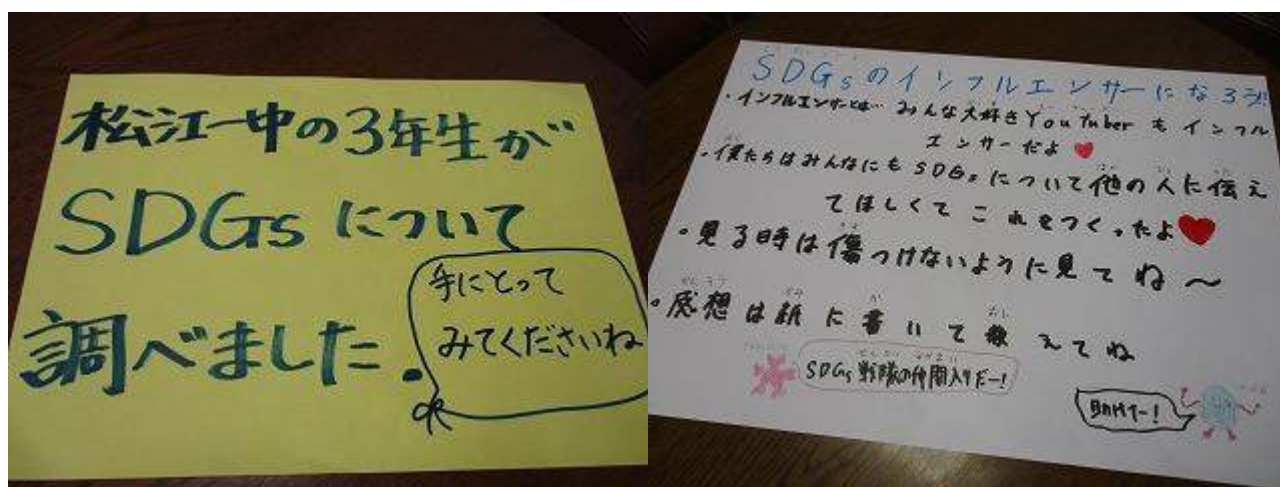 松江一中の3年生が
SDGsについて
調べました.
手にとって
みてくださいね
SDGsのインフルエンサーになろう
・インフルエンサーとは… みんな大好きYouTuberもインフル
エンサーだよ
・僕たちはみんなにもSDGsについて他の人に伝え
てほしくてこれをつくったよ
・見る時は傷つけないように見てね〜
・感想は紙に書いて教えてね
SDGs戦隊の仲間入りだー!
助けてー!